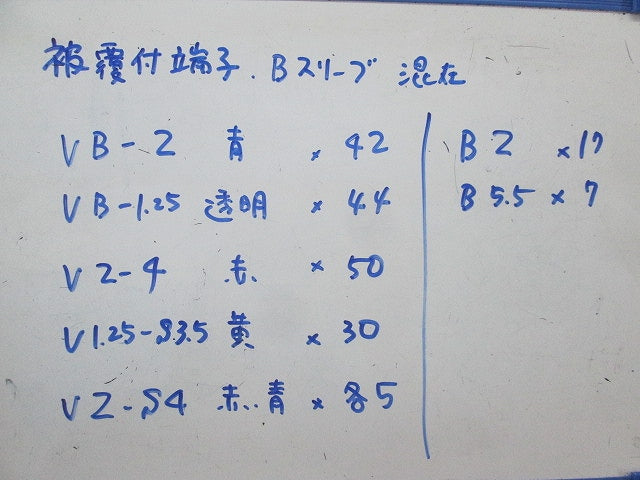 被覆付端子.Bスリーブ 混在
VB-2 青 × 42
VB-1.25 透明 × 44
V2-4 赤 × 50
V1.25-S3.5 黄 × 30
V2-S4 赤.青 × 各5
B2 ×17
B5.5 × 7